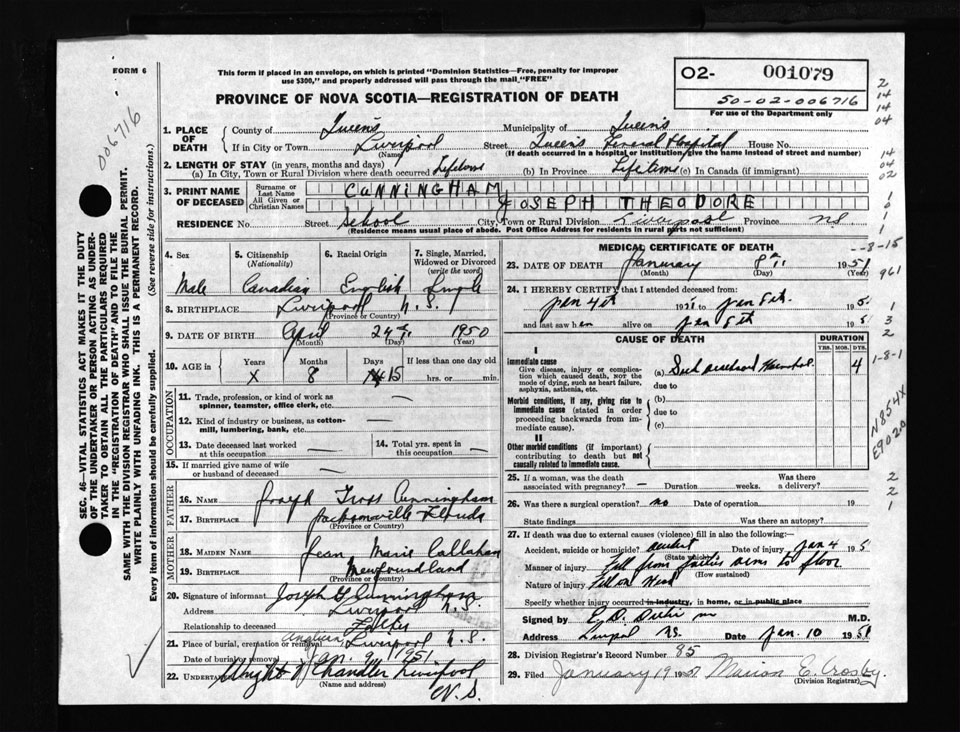 FORM 6
This form if placed in an envelope, on which is printed "Dominion Statistics—Free, penalty for improper
use $300," and properly addressed will pass through the mail, "FREE"
PROVINCE OF NOVA SCOTIA—REGISTRATION OF DEATH
O2- 001079
50-02-006716
For use of the Department only
006716
2
14
14
04
14
04
02
SEC. 46—VITAL STATISTICS ACT MAKES IT THE DUTY
OF THE UNDERTAKER OR PERSON ACTING AS UNDER-
TAKER TO OBTAIN ALL THE PARTICULARS REQUIRED
IN THE "REGISTRATION OF DEATH" AND TO FILE THE
SAME WITH THE DIVISION REGISTRAR WHO SHALL ISSUE THE BURIAL PERMIT.
WRITE PLAINLY WITH UNFADING INK. THIS IS A PERMANENT RECORD.
Every item of information should be carefully supplied. (See reverse side for instructions.)
1. PLACE OF DEATH County of Queen's Municipality of Queen's
If in City or Town Liverpool Street Queen's General Hospital House No.
(Name) (If death occurred in a hospital or institution, give the name instead of street and number)
2. LENGTH OF STAY (in years, months and days)
(a) In City, Town or Rural Division where death occurred Lifetime (b) In Province Lifetime (c) In Canada (if immigrant)
3. PRINT NAME OF DECEASED Surname or Last Name CUNNINGHAM
All Given or Christian Names JOSEPH THEODORE
RESIDENCE No. Street School City, Town or Rural Division Liverpool Province NS
(Residence means usual place of abode. Post Office Address for residents in rural parts not sufficient)
4. Sex 5. Citizenship (Nationality) 6. Racial Origin 7. Single, Married, Widowed or Divorced (write the word)
Male Canadian English Single
8. BIRTHPLACE Liverpool N.S.
(Province or Country)
9. DATE OF BIRTH April 24th 1950
(Month) (Day) (Year)
10. AGE in Years Months Days If less than one day old
X 8 15 hrs. or min.
OCCUPATION
11. Trade, profession, or kind of work as
spinner, teamster, office clerk, etc.
12. Kind of industry or business, as cotton-
mill, lumbering, bank, etc.
13. Date deceased last worked at this occupation 14. Total yrs. spent in this occupation
15. If married give name of wife
or husband of deceased
FATHER
16. Name Joseph Cunningham
17. Birthplace Jacksonville Florida
(Province or Country)
MOTHER
18. Maiden Name Jean Marie Callahan
19. Birthplace Newfoundland
(Province or Country)
20. Signature of informant Joseph G Cunningham
Address Liverpool N.S.
Relationship to deceased Father
21. Place of burial, cremation or removal Anglican Liverpool N.S.
Date of burial or removal Jan. 9 1951
22. UNDERTAKER Wright & Chandler Liverpool
(Name and address) N.S.
MEDICAL CERTIFICATE OF DEATH
23. DATE OF DEATH January 8th 1951
(Month) (Day) (Year)
24. I HEREBY CERTIFY that I attended deceased from:
Jan 4th 1951 to Jan 8th 195
and last saw h alive on Jan 8th 1951
CAUSE OF DEATH DURATION
YRS. MOS. DYS.
I
Immediate cause
Give disease, injury or complica-
tion which caused death, not the
mode of dying, such as heart failure,
asphyxia, asthenia, etc.
(a) 4
due to
Morbid conditions, if any, giving rise to
immediate cause (stated in order
proceeding backwards from im-
mediate cause).
(b)
due to
(c)
II
Other morbid conditions (if important)
contributing to death but not
causally related to immediate cause.
25. If a woman, was the death
associated with pregnancy? Duration weeks. Was there a delivery?
26. Was there a surgical operation? no Date of operation 19
State findings Was there an autopsy?
27. If death was due to external causes (violence) fill in also the following:
Accident, suicide or homicide? Accident Date of injury Jan 4 195
(State which)
Manner of injury Fell from father's arms to floor
(How sustained)
Nature of injury Fell on Head
Specify whether injury occurred in industry, in home, or in public place
Signed by M.D.
Address Date Jan. 10 1951
28. Division Registrar's Record Number 85
29. Filed January 19 1951 Marion E. Crosby
(Division Registrar)
-8-15
961
1
3
2
1-8-1
N854X
E9020
2
2
1